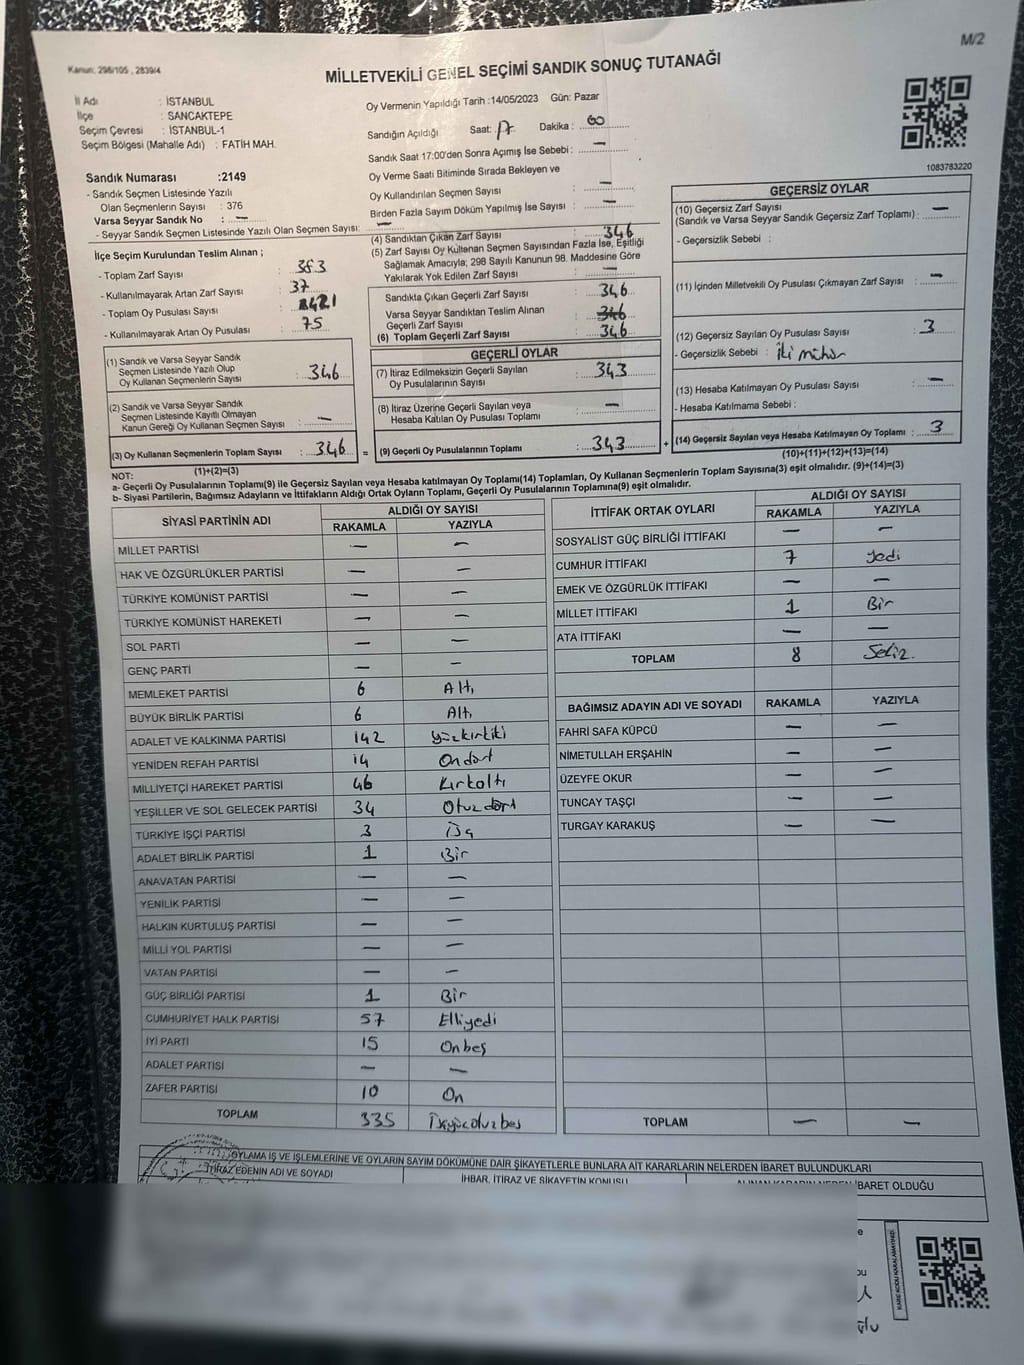 M/2
Kanun: 298/105 , 2839/4
MİLLETVEKİLİ GENEL SEÇİMİ SANDIK SONUÇ TUTANAĞI
İl Adı : İSTANBUL
İlçe : SANCAKTEPE
Seçim Çevresi : İSTANBUL-1
Seçim Bölgesi (Mahalle Adı) : FATİH MAH.
Sandık Numarası :2149
- Sandık Seçmen Listesinde Yazılı
Olan Seçmenlerin Sayısı : 376
Varsa Seyyar Sandık No : —
- Seyyar Sandık Seçmen Listesinde Yazılı Olan Seçmen Sayısı: —
Oy Vermenin Yapıldığı Tarih :14/05/2023 Gün: Pazar
Sandığın Açıldığı Saat: 17 Dakika : 00
Sandık Saat 17:00'den Sonra Açımış İse Sebebi : —
Oy Verme Saati Bitiminde Sırada Bekleyen ve
Oy Kullandırılan Seçmen Sayısı : —
Birden Fazla Sayım Döküm Yapılmış İse Sayısı : —
1083783220
İlçe Seçim Kurulundan Teslim Alınan ;
- Toplam Zarf Sayısı : 383
- Kullanılmayarak Artan Zarf Sayısı : 37
- Toplam Oy Pusulası Sayısı : 421
- Kullanılmayarak Artan Oy Pusulası : 75
(1) Sandık ve Varsa Seyyar Sandık
Seçmen Listesinde Yazılı Olup
Oy Kullanan Seçmenlerin Sayısı : 346
(2) Sandık ve Varsa Seyyar Sandık
Seçmen Listesinde Kayıtlı Olmayan
Kanun Gereği Oy Kullanan Seçmen Sayısı : —
(3) Oy Kullanan Seçmenlerin Toplam Sayısı : 346
(1)+(2)=(3)
(4) Sandıktan Çıkan Zarf Sayısı : 346
(5) Zarf Sayısı Oy Kullanan Seçmen Sayısından Fazla İse, Eşitliği
Sağlamak Amacıyla; 298 Sayılı Kanunun 98. Maddesine Göre
Yakılarak Yok Edilen Zarf Sayısı : —
Sandıkta Çıkan Geçerli Zarf Sayısı : 346
Varsa Seyyar Sandıktan Teslim Alınan
Geçerli Zarf Sayısı : 346
(6) Toplam Geçerli Zarf Sayısı : 346
GEÇERLİ OYLAR
(7) İtiraz Edilmeksizin Geçerli Sayılan
Oy Pusulalarının Sayısı : 343
(8) İtiraz Üzerine Geçerli Sayılan veya
Hesaba Katılan Oy Pusulası Toplamı : —
= (9) Geçerli Oy Pusulalarının Toplamı : 343 +
GEÇERSİZ OYLAR
(10) Geçersiz Zarf Sayısı
(Sandık ve Varsa Seyyar Sandık Geçersiz Zarf Toplamı) : —
- Geçersizlik Sebebi :
(11) İçinden Milletvekili Oy Pusulası Çıkmayan Zarf Sayısı : —
(12) Geçersiz Sayılan Oy Pusulası Sayısı : 3
- Geçersizlik Sebebi : İki mühür
(13) Hesaba Katılmayan Oy Pusulası Sayısı : —
- Hesaba Katılmama Sebebi :
(14) Geçersiz Sayılan veya Hesaba Katılmayan Oy Toplamı : 3
(10)+(11)+(12)+(13)=(14)
NOT:
a- Geçerli Oy Pusulalarının Toplamı(9) ile Geçersiz Sayılan veya Hesaba katılmayan Oy Toplamı(14) Toplamları, Oy Kullanan Seçmenlerin Toplam Sayısına(3) eşit olmalıdır. (9)+(14)=(3)
b- Siyasi Partilerin, Bağımsız Adayların ve İttifakların Aldığı Ortak Oyların Toplamı, Geçerli Oy Pusulalarının Toplamına(9) eşit olmalıdır.
SİYASİ PARTİNİN ADI ALDIĞI OY SAYISI
RAKAMLA YAZIYLA
MİLLET PARTİSİ — —
HAK VE ÖZGÜRLÜKLER PARTİSİ — —
TÜRKİYE KOMÜNİST PARTİSİ — —
TÜRKİYE KOMÜNİST HAREKETİ — —
SOL PARTİ — —
GENÇ PARTİ — —
MEMLEKET PARTİSİ 6 Altı
BÜYÜK BİRLİK PARTİSİ 6 Altı
ADALET VE KALKINMA PARTİSİ 142 yüzkırkiki
YENİDEN REFAH PARTİSİ 14 Ondört
MİLLİYETÇİ HAREKET PARTİSİ 46 Kırkaltı
YEŞİLLER VE SOL GELECEK PARTİSİ 34 Otuzdört
TÜRKİYE İŞÇİ PARTİSİ 3 Üç
ADALET BİRLİK PARTİSİ 1 Bir
ANAVATAN PARTİSİ — —
YENİLİK PARTİSİ — —
HALKIN KURTULUŞ PARTİSİ — —
MİLLİ YOL PARTİSİ — —
VATAN PARTİSİ — —
GÜÇ BİRLİĞİ PARTİSİ 1 Bir
CUMHURİYET HALK PARTİSİ 57 Elliyedi
İYİ PARTİ 15 Onbeş
ADALET PARTİSİ — —
ZAFER PARTİSİ 10 On
TOPLAM 335 Üçyüzotuzbeş
İTTİFAK ORTAK OYLARI ALDIĞI OY SAYISI
RAKAMLA YAZIYLA
SOSYALİST GÜÇ BİRLİĞİ İTTİFAKI — —
CUMHUR İTTİFAKI 7 Yedi
EMEK VE ÖZGÜRLÜK İTTİFAKI — —
MİLLET İTTİFAKI 1 Bir
ATA İTTİFAKI — —
TOPLAM 8 Sekiz.
BAĞIMSIZ ADAYIN ADI VE SOYADI RAKAMLA YAZIYLA
FAHRİ SAFA KÜPCÜ — —
NİMETULLAH ERŞAHİN — —
ÜZEYFE OKUR — —
TUNCAY TAŞÇI — —
TURGAY KARAKUŞ — —
TOPLAM — —
OYLAMA İŞ VE İŞLEMLERİNE VE OYLARIN SAYIM DÖKÜMÜNE DAİR ŞİKAYETLERLE BUNLARA AİT KARARLARIN NELERDEN İBARET BULUNDUKLARI
İTİRAZ EDENİN ADI VE SOYADI İHBAR, İTİRAZ VE ŞİKAYETİN KONUSU ALINAN KARARIN NEDEN İBARET OLDUĞU
KARE KODU KARALAMAYINIZ!